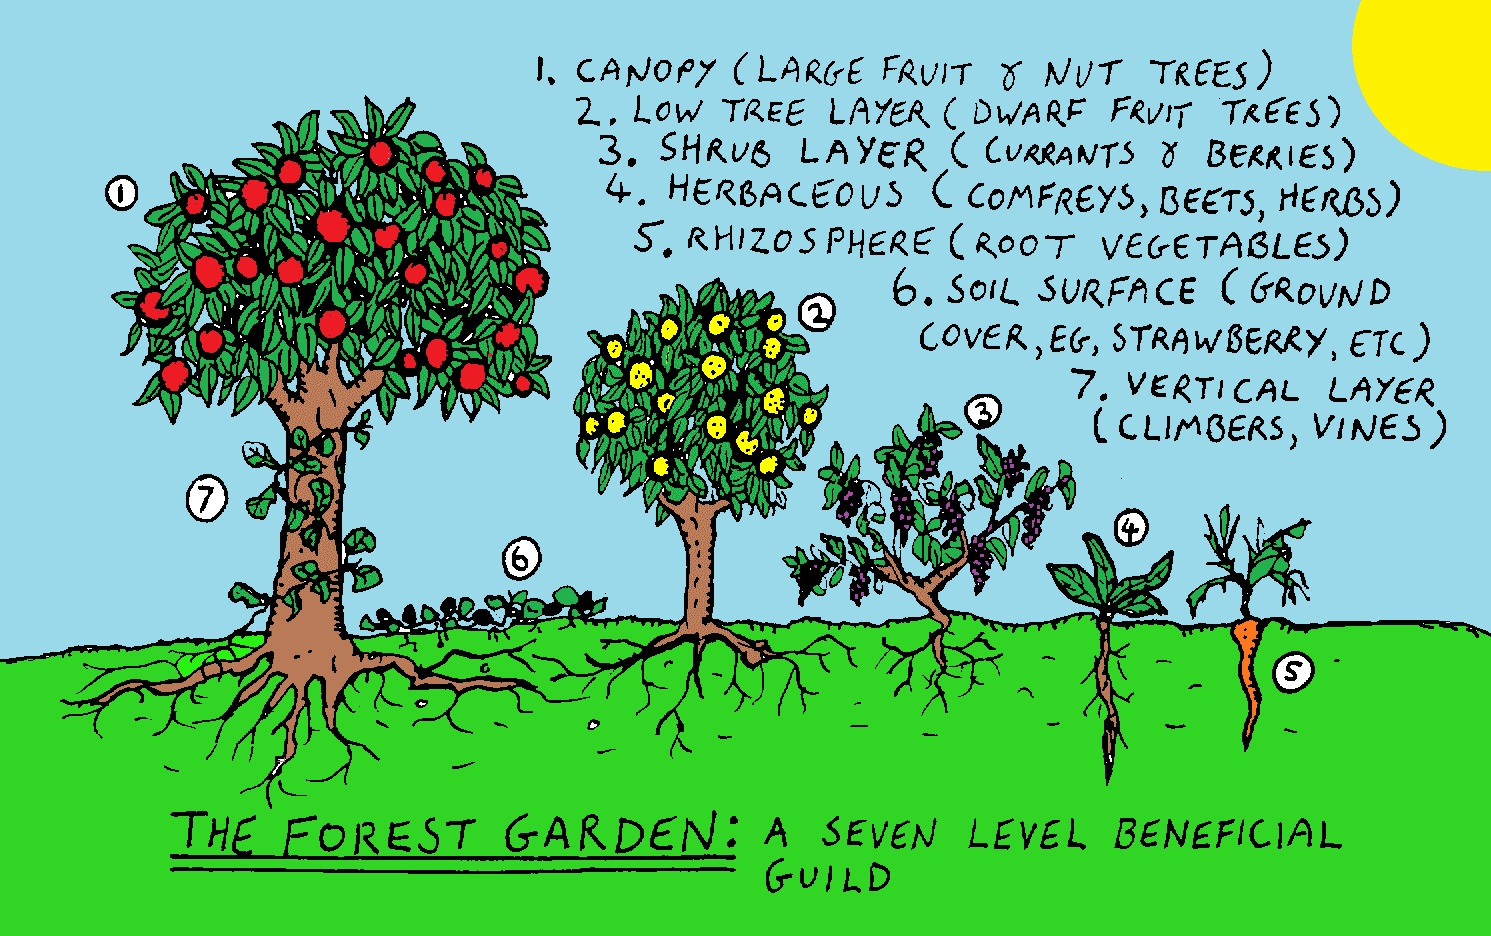 1. CANOPY (LARGE FRUIT & NUT TREES)
2. LOW TREE LAYER (DWARF FRUIT TREES)
3. SHRUB LAYER (CURRANTS & BERRIES)
4. HERBACEOUS (COMFREYS, BEETS, HERBS)
5. RHIZOSPHERE (ROOT VEGETABLES)
6. SOIL SURFACE (GROUND
COVER, EG, STRAWBERRY, ETC)
7. VERTICAL LAYER
(CLIMBERS, VINES)
1
2
3
7
4
6
5
THE FOREST GARDEN: A SEVEN LEVEL BENEFICIAL
GUILD